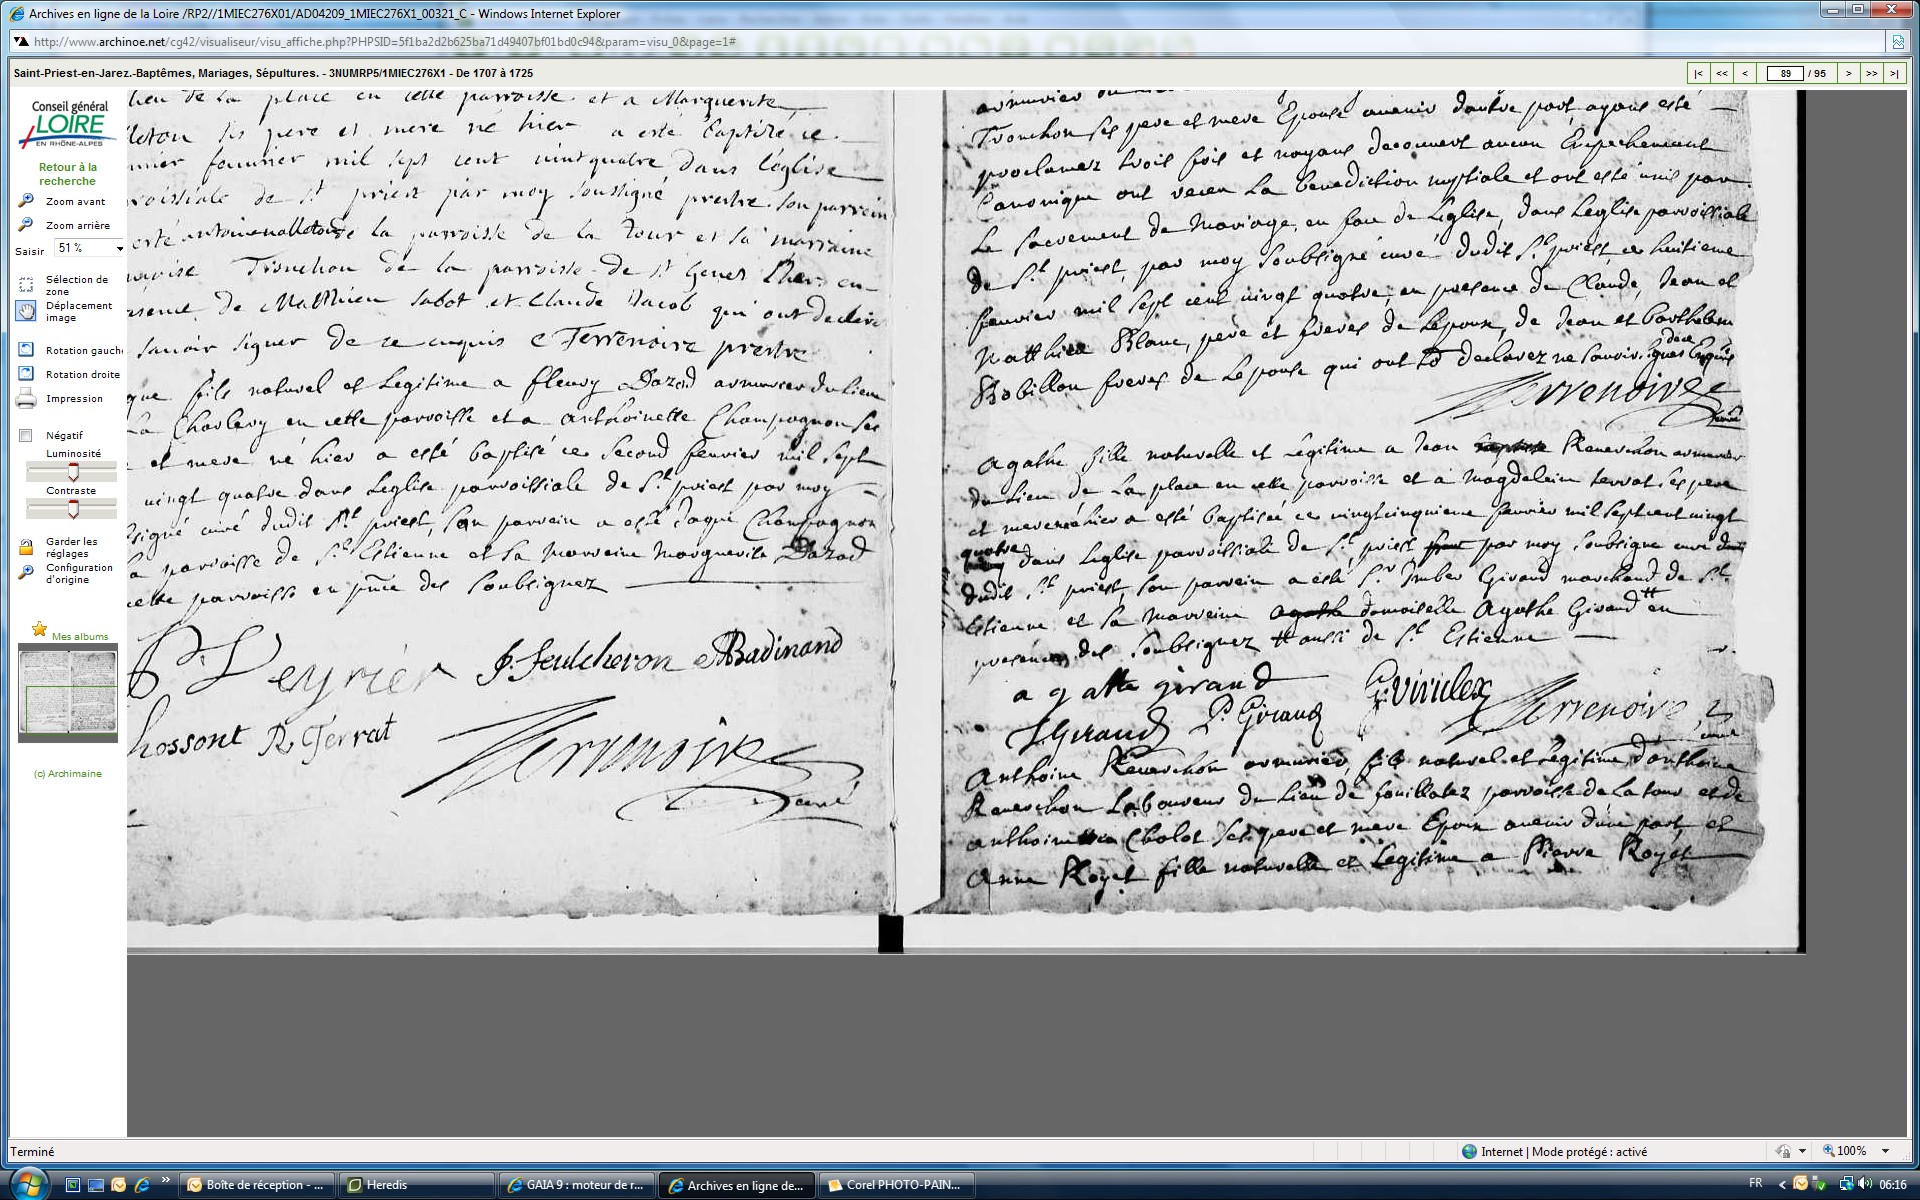 Archives en ligne de la Loire /RP2//1MIEC276X01/AD04209_1MIEC276X1_00321_C - Windows Internet Explorer
http://www.archinoe.net/cg42/visualiseur/visu_affiche.php?PHPSID=5f1ba2d2b625ba71d49407bf01bd0c94&param=visu_0&page=1#
Saint-Priest-en-Jarez.-Baptêmes, Mariages, Sépultures. - 3NUMRP5/1MIEC276X1 - De 1707 à 1725
|< << < 89 / 95 > >> >|
Conseil général
LOIRE
EN RHÔNE-ALPES
Retour à la
recherche
Zoom avant
Zoom arrière
Saisir 51 %
Sélection de
zone
Déplacement
image
Rotation gauche
Rotation droite
Impression
Négatif
Luminosité
Contraste
Garder les
réglages
Configuration
d'origine
Mes albums
(c) Archimaine
lieu de la place en cette parroisse et a Marguerite
ses pere et mere né hier a esté baptizé ce
feuvrier mil sept cent vintquatre dans l'église
de st priest par moy soussigné prestre son parrein
esté antoine de la parroisse de la tour et sa marraine
Tronchon de la parroisse de st Genes
de Matthieu Sabot et Claude Jacob qui ont declaré
savoir signer de ce enquis Terrenoire prestre
que fils naturel et legitime a fleury Dazod armurier du lieu
en cette parroisse et a anthoinette Champagnon ses
et mere né hier a esté baptisé ce second feuvrier mil sept
vingt quatre dans Leglise parroissiale de St priest par moy
curé dudit St priest, son parrein a esté Jaque Champagnon
parroisse de St Estienne et sa marreine Marguerite Dazod
cette parroisse en pnce des soubsignez
Peyrier J. feulcheron Badinand
R Terrat
Terrenoire
curé
armurier
Tronchon ses pere et mere Epouse avenir dautre part, ayans esté
proclamez trois fois et n'ayans decouvert aucun Empechement
Canonique ont receu La benediction nuptiale et ont esté unis par
Le sacrement de Mariage en face de Leglise, dans Leglise parroissiale
de St priest, par moy soubsigné curé dudit St priest, ce huitieme
feuvrier mil sept cent vingt quatre, en presence de Claude, Jean et
Matthieu Blanc, pere et freres de Lepoux, de Jean et Barthelemy
Robillon freres de Lepouse qui ont declarez ne savoir signer Enquis
Terrenoire
curé
Agathe fille naturelle et Legitime a Jean Reverchon armurier
du Lieu de La place en cette parroisse et a magdelein terrat ses pere
et mere née hier a esté baptisée ce vingtcinquieme feuvrier mil sept cent vingt
quatre dans Leglise parroissiale de St priest par moy soubsigné curé
dudit St priest, son parrein a esté Sr Imber Giraud marchand de St
Estienne et sa marreine agathe damoiselle Agathe Giraud en
presence des soubsignez aussi de St Estienne
agatte giraud
Giraud P. Giraud Terrenoire
curé
Anthoine Reverchon armurier, fils naturel et Legitime d'anthoine
Reverchon Laboureur du Lieu de fouillatez parroisse de La tour et de
anthoin Cholot ses pere et mere Epoux avenir d'une part, et
Anne Royet fille naturelle et Legitime a Pierre Royet
Terminé
Internet | Mode protégé : activé
100%
Boîte de réception - ...
Heredis
GAIA 9 : moteur de r...
Archives en ligne de...
Corel PHOTO-PAIN...
FR
06:16